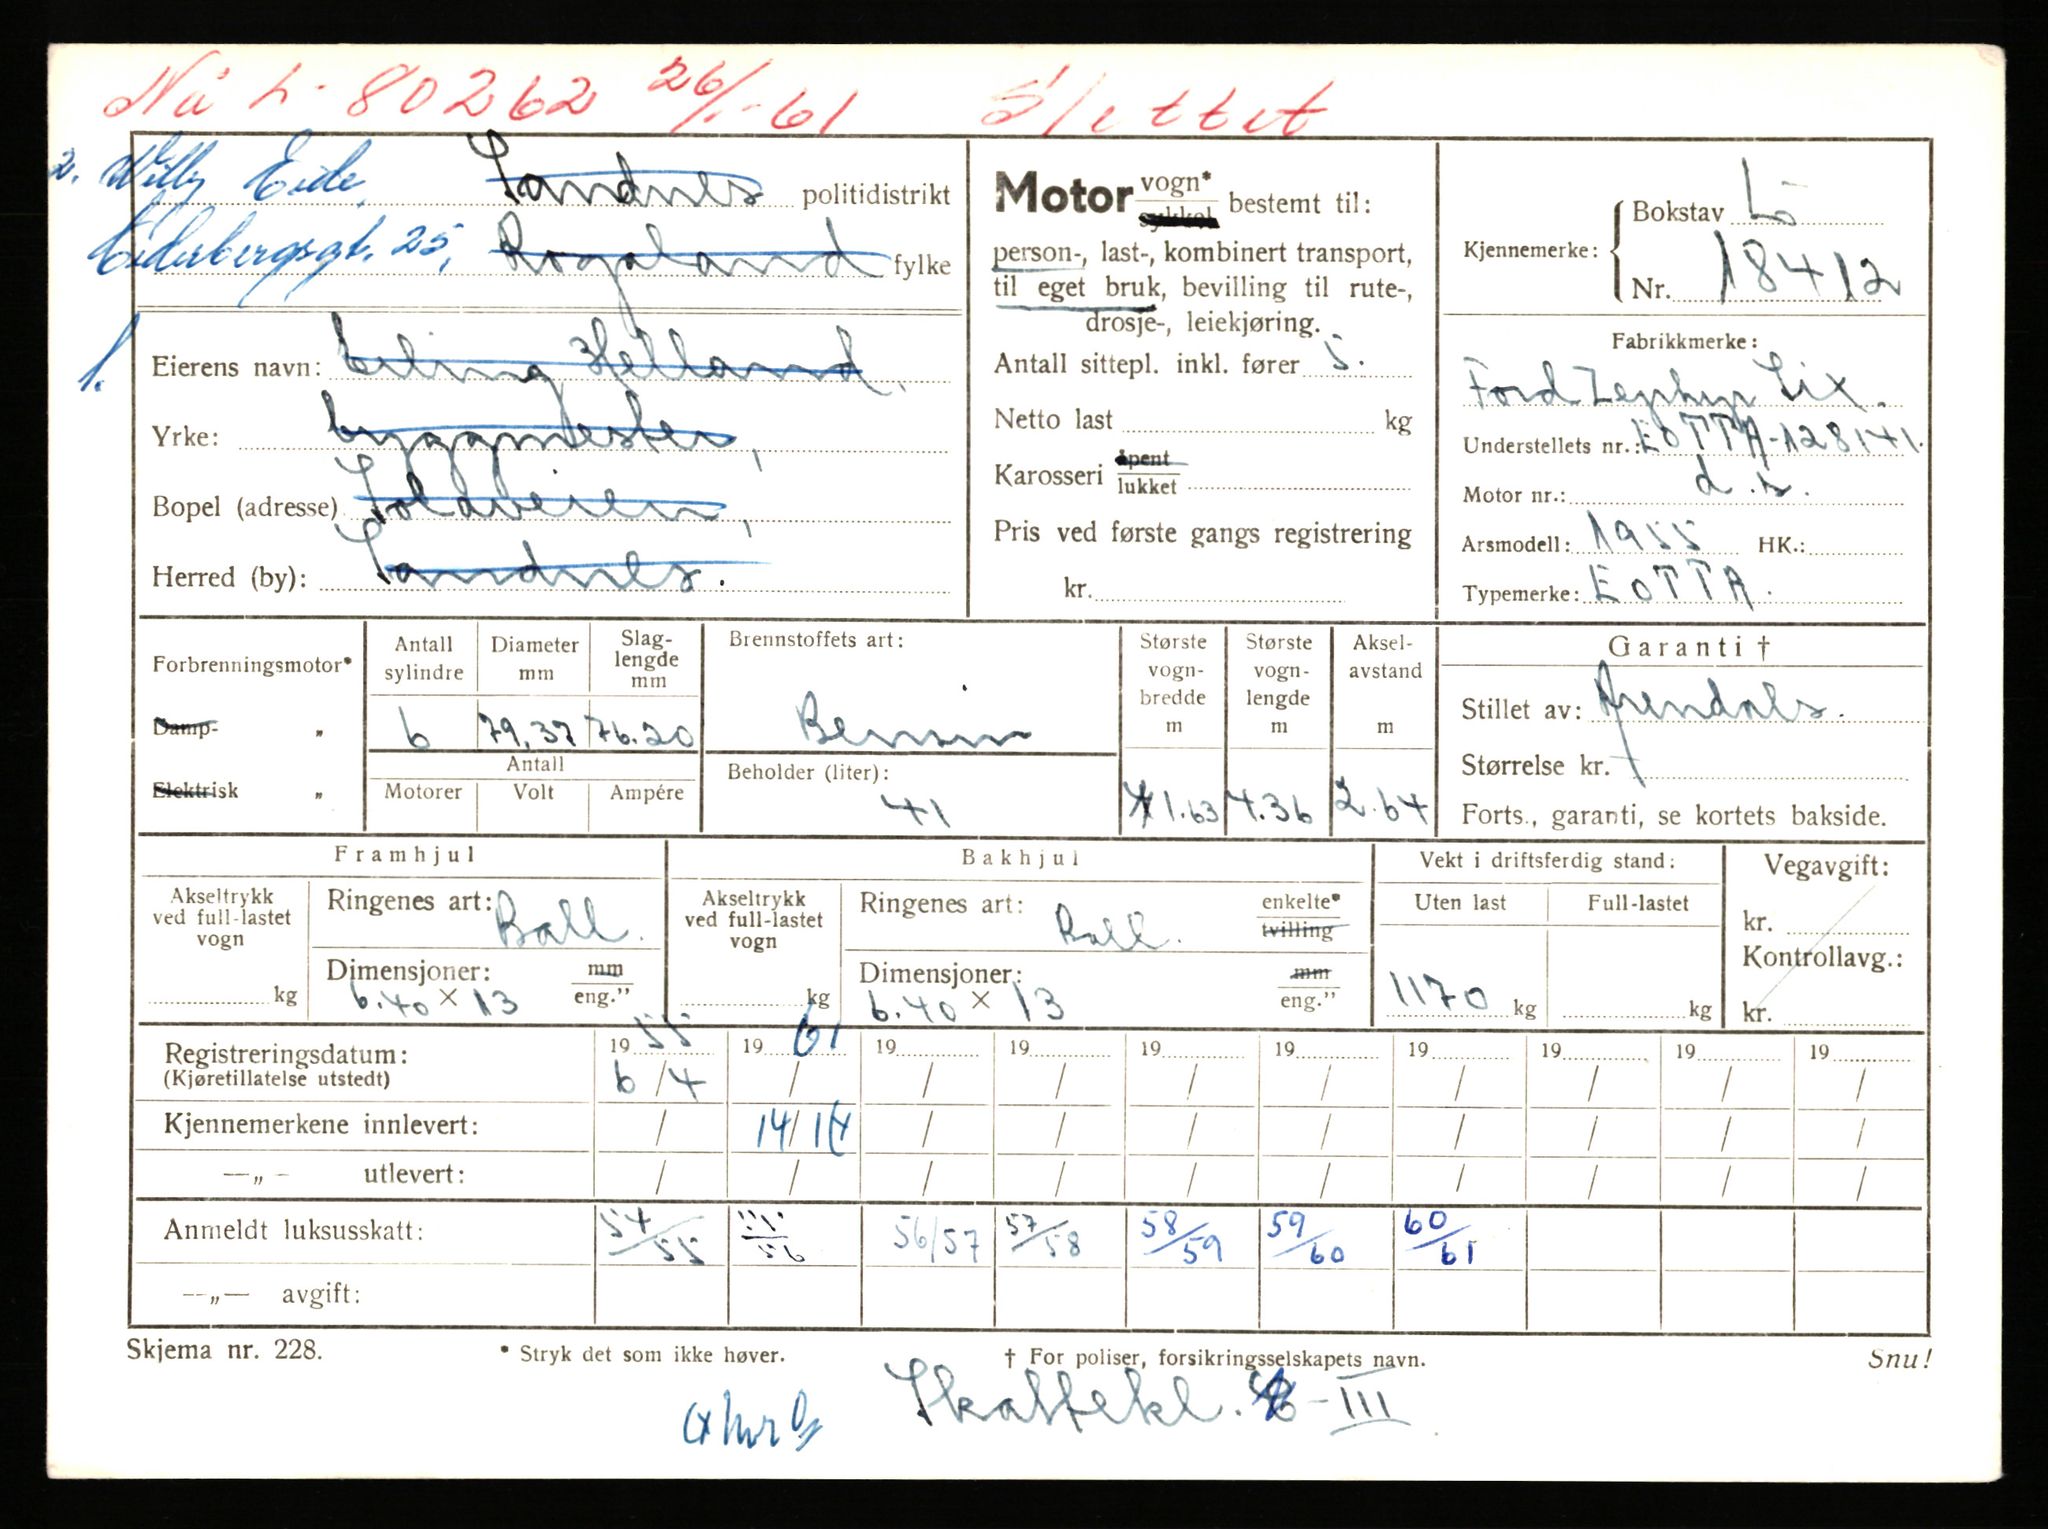 Nå L-80262 26/1-61 Slettet
2. Willy Eide, Sandnes politidistrikt
25, Rogaland fylke
1. Eierens navn: Erling Helland.
Yrke: byggmester,
Bopel (adresse) Solaveien,
Herred (by): Sandnes.
Motor vogn* sykkel bestemt til:
person-, last-, kombinert transport,
til eget bruk, bevilling til rute-,
drosje-, leiekjøring.
Antall sittepl. inkl. fører 5.
Netto last kg
Karosseri åpent lukket
Pris ved første gangs registrering
kr.
Kjennemerke: Bokstav L
Nr. 18412
Fabrikkmerke:
Ford Zephyr Six.
Understellets nr.: EOTTA-128141.
Motor nr.: d.s.
Arsmodell: 1955 HK.:
Typemerke: EOTTA.
Forbrenningsmotor*
Damp- „
Elektrisk „
Antall sylindre Diameter mm Slag-lengde mm
6 79,37 76.20
Antall
Motorer Volt Ampére
Brennstoffets art:
Bensin
Beholder (liter):
41
Største vogn-bredde m
1.63
Største vogn-lengde m
4.36
Aksel-avstand m
2.64
Garanti †
Stillet av: Arendals.
Størrelse kr.
Forts., garanti, se kortets bakside.
Framhjul
Akseltrykk ved full-lastet vogn
kg
Ringenes art: Ball.
Dimensjoner: mm eng."
6.40 × 13
Bakhjul
Akseltrykk ved full-lastet vogn
kg
Ringenes art: Ball. enkelte* tvilling
Dimensjoner: mm eng."
6.40 × 13
Vekt i driftsferdig stand:
Uten last Full-lastet
1170 kg kg
Vegavgift:
kr.
Kontrollavg.:
kr.
Registreringsdatum: 1955 1961 19 19 19 19 19 19 19 19
(Kjøretillatelse utstedt) 6/4 / / / / / / / / /
Kjennemerkene innlevert: / 14/ / / / / / / / /
—„— utlevert: / / / / / / / / / /
Anmeldt luksusskatt: 54/55 55/56 56/57 57/58 58/59 59/60 60/61
—„— avgift:
Skjema nr. 228. * Stryk det som ikke høver. † For poliser, forsikringsselskapets navn. Snu!
Skattekl. -III